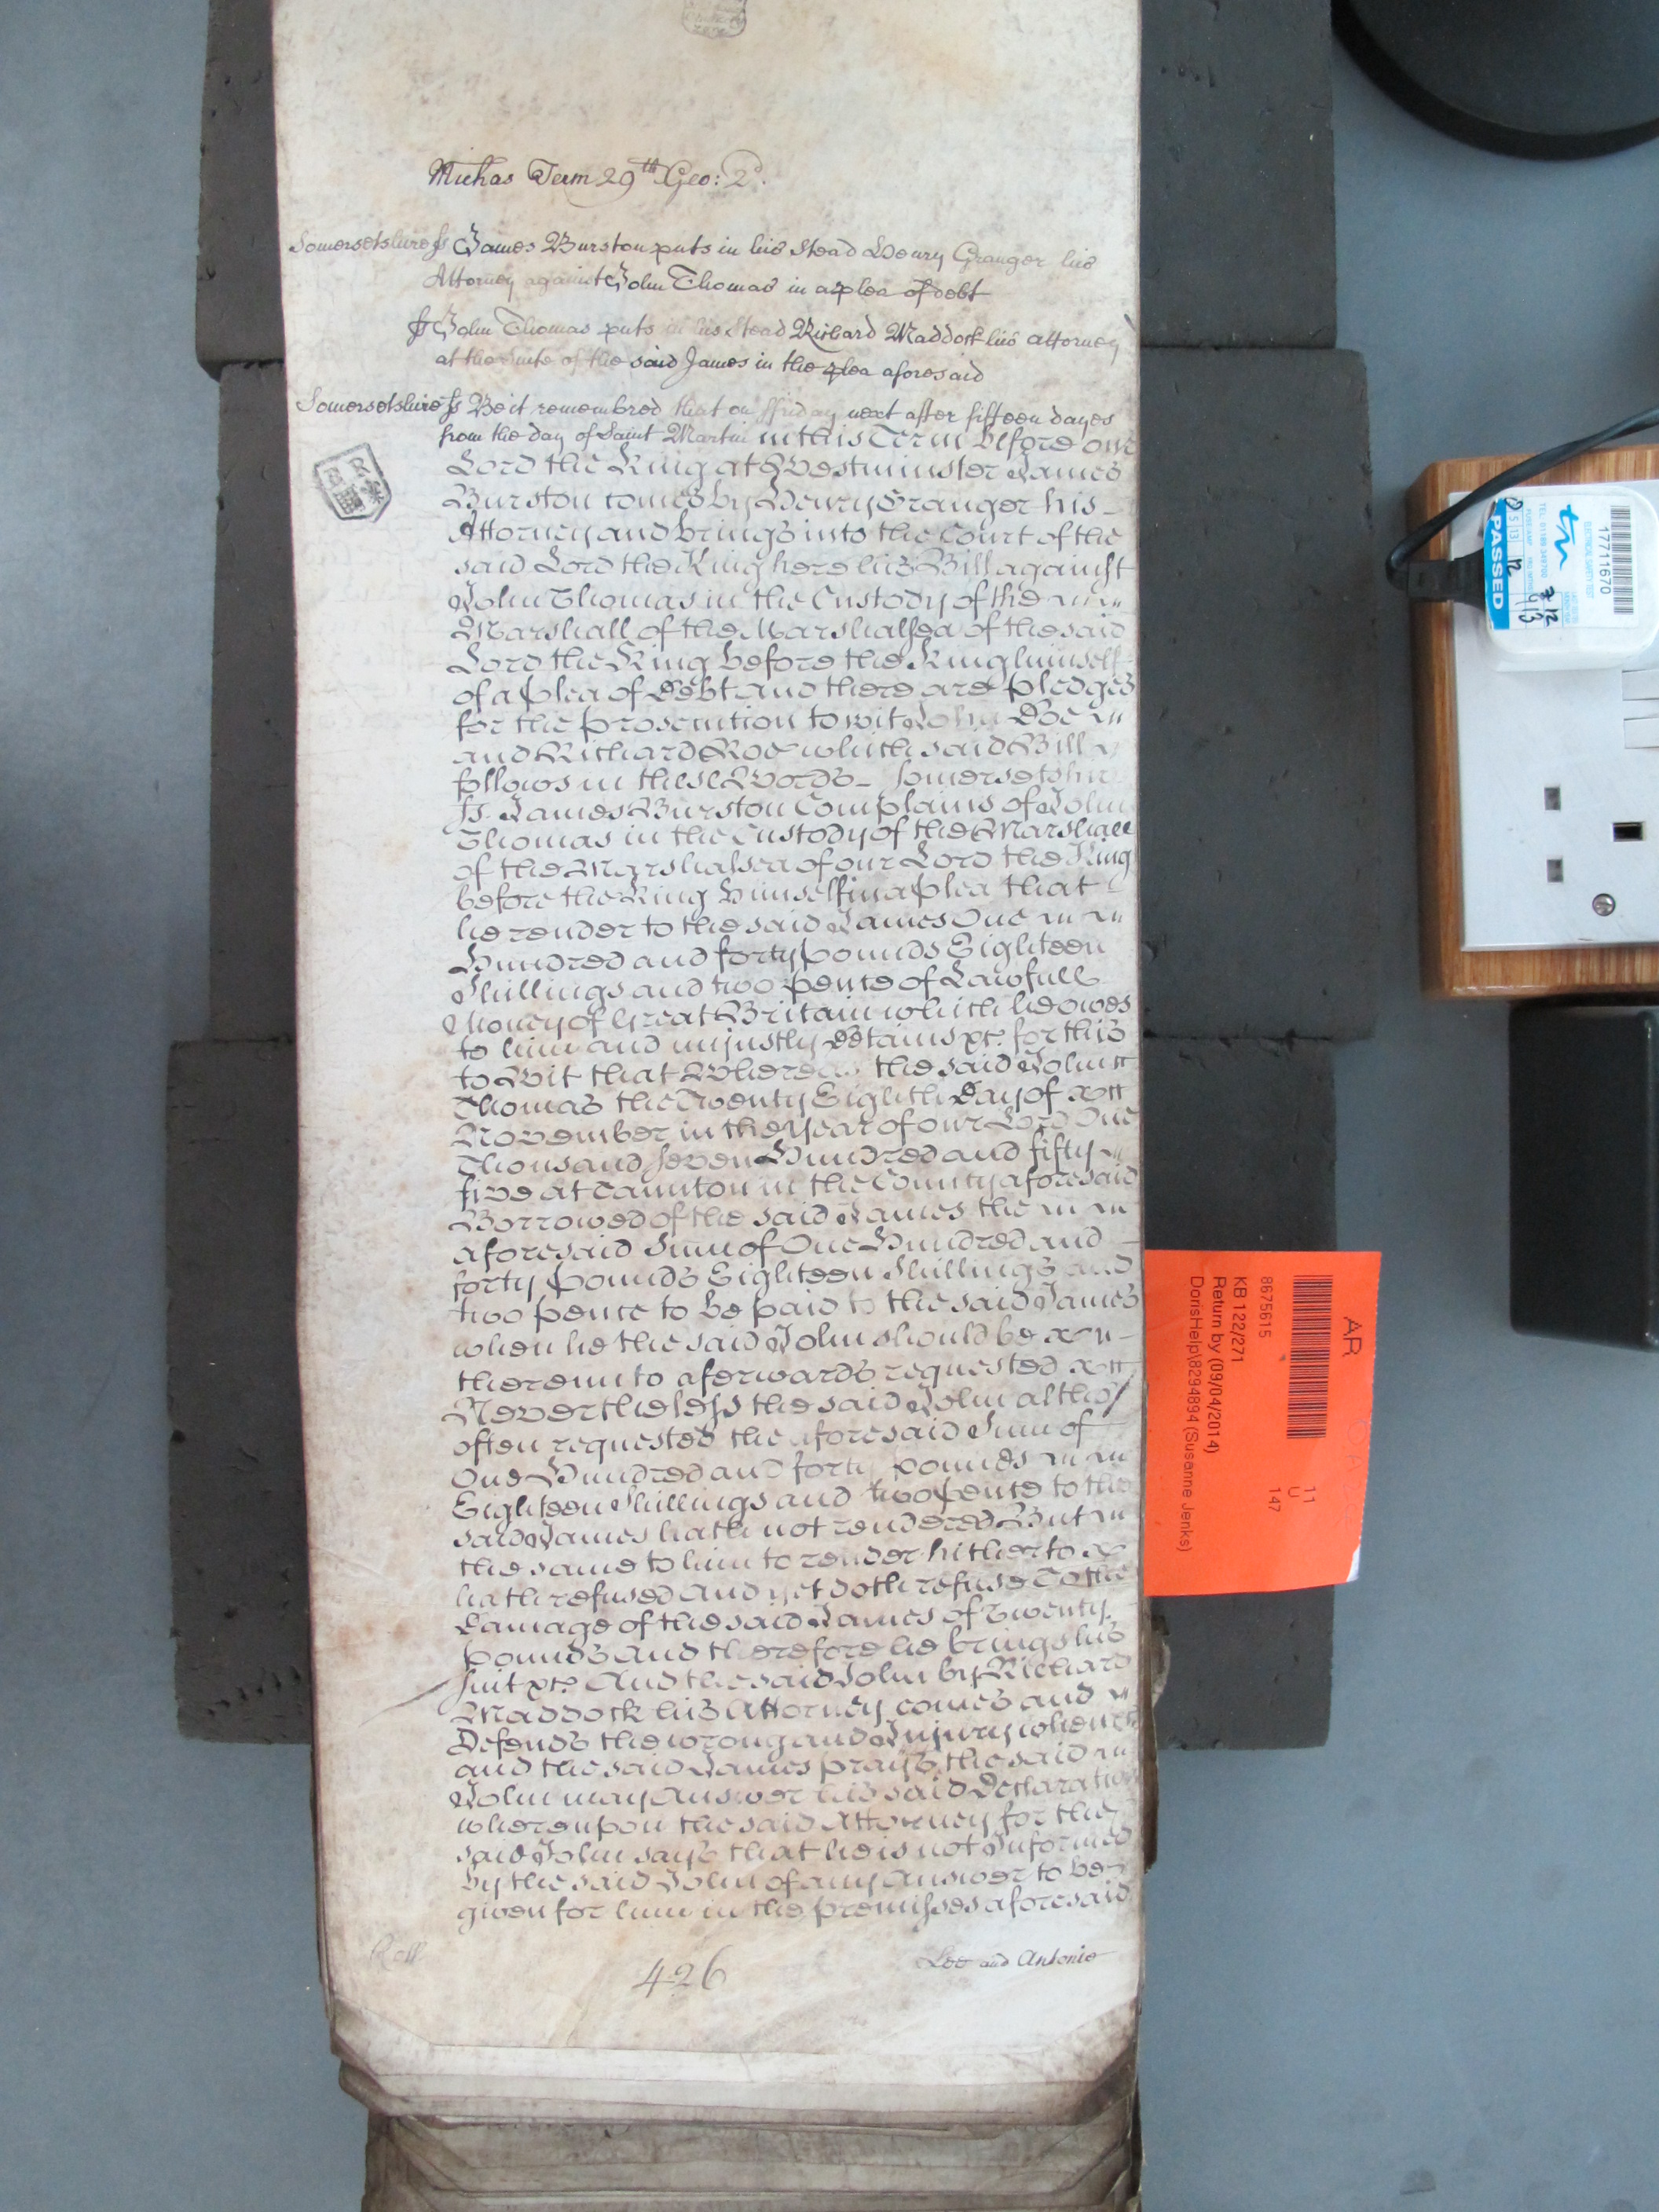 Michas Term 29th Geo: 2d.
Somersetshire ss James Burston puts in his Stead Henry Granger his
Attorney against John Thomas in a plea of debt
ss John Thomas puts in his Stead Richard Maddock his attorney
at the Suite of the said James in the plea aforesaid
Somersetshire ss Be it remembred that on ffriday next after fifteen dayes
from the day of Saint Martin in this Term before our
Lord the King at Westminster James
Burston comes by Henry Granger his
Attorney and brings into the Court of the
said Lord the King here his Bill against
John Thomas in the Custody of the
Marshall of the Marshalsea of the said
Lord the King before the King himself
of a plea of Debt and there are pledges
for the prosecution to wit John Doe
and Richard Roe which said Bill
follows in these Words Somersetshire
ss. James Burston Complains of John
Thomas in the Custody of the Marshall
of the Marshalsea of our Lord the King
before the King himself in a plea that
he render to the said James One
Hundred and forty pounds Eighteen
Shillings and two pence of Lawfull
Money of Great Britain which he owes
to him and unjustly detains &c. for this
to Wit that Whereas the said John
Thomas the Twenty Eighth Day of
November in the Year of our Lord One
Thousand Seven Hundred and fifty
five at Taunton in the County aforesaid
Borrowed of the said James the
aforesaid Sum of One Hundred and
forty pounds Eighteen Shillings and
two pence to be paid to the said James
when he the said John should be
thereunto aferwards requested
Nevertheless the said John altho'
often requested the aforesaid Sum of
One Hundred and forty pounds
Eighteen Shillings and two pence to the
said James hath not rendered But
the same to him to render hitherto
hath refused and yet doth refuse To the
Damage of the said James of Twenty
pounds and therefore he brings his
suit &c. And the said John by Richard
Maddock his Attorney comes and
Defends the wrong and Injury when &c
and the said James prays the said
John may Answer his said Declaration
whereupon the said Attorney for the
said John says that he is not Informed
by the said John of any Answer to be
given for him in the premisses aforesaid
Roll
426
Lee and Antonie
AR
11
U
147
8675615
KB 122/271
Return by (09/04/2014)
DorisHelp\8294894 (Susanne Jenks)
17711670
ELECTRICAL SAFETY TEST
PASSED